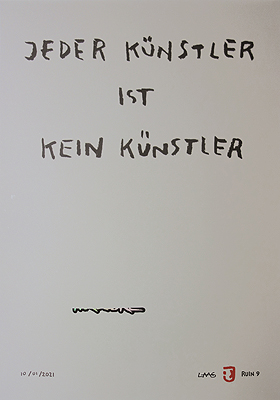 JEDER KÜNSTLER
IST
KEIN KÜNSTLER
10/05/2021
LMS
RUIN 9